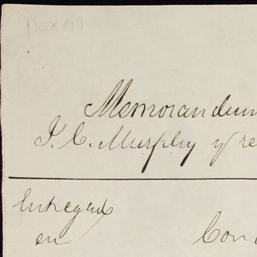 Memorandum
J. C. Murphy y re
Entregad
en
Con